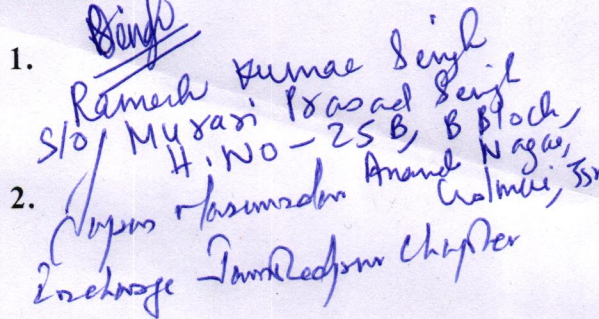 1. Singh
Ramesh Kumar Singh
S/o, Murari Prasad Singh
H.NO - 25B, B Block,
Anand Nagar,
Golmuri, Jsr
2. Tapas
Incharge Jamshedpur Chapter